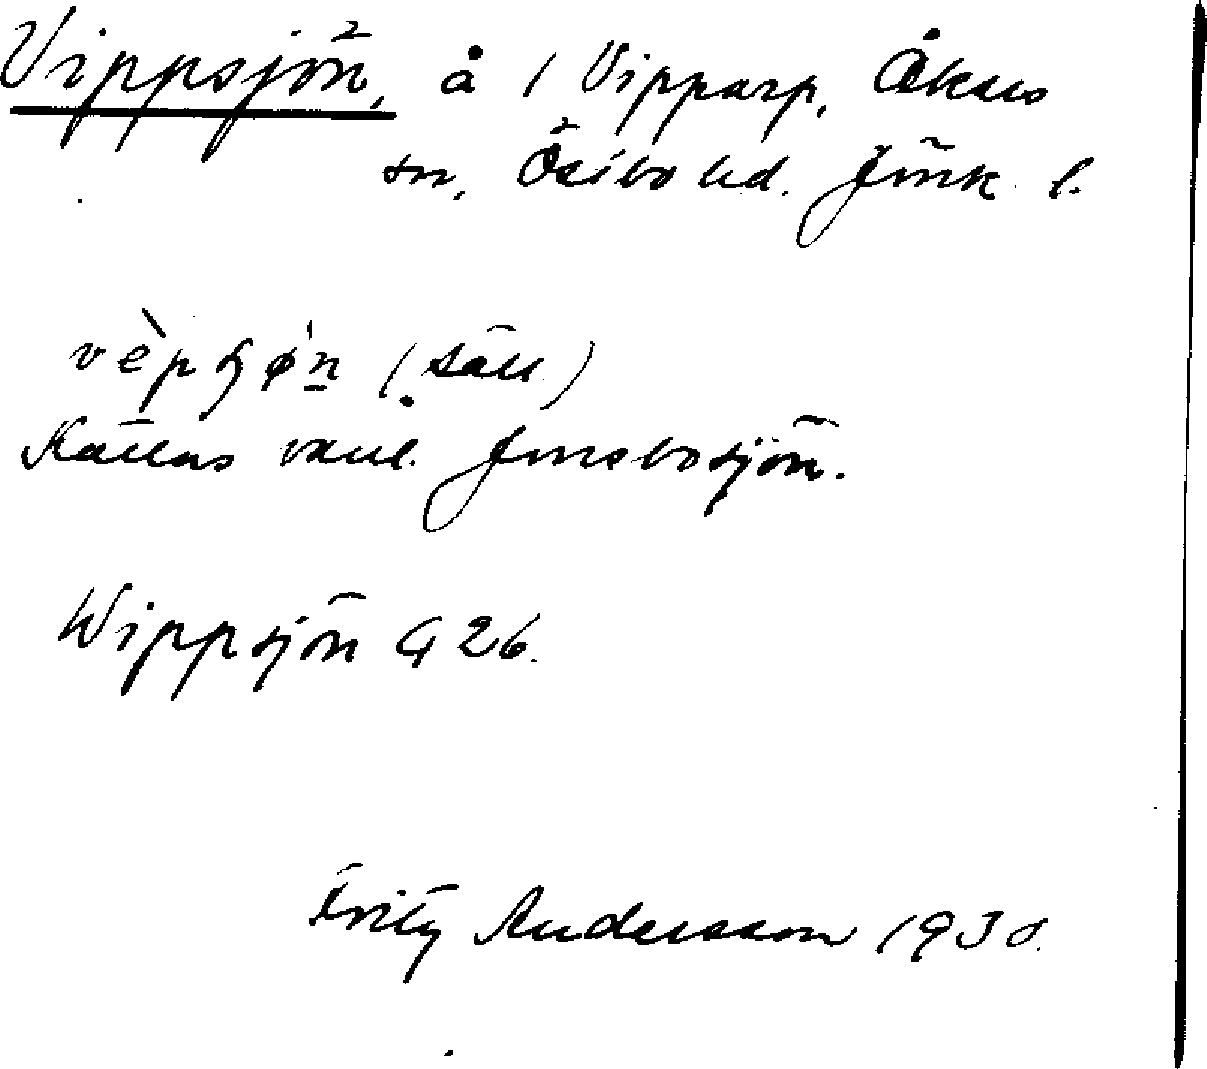 Vippsjön, å 1 Vipparp, Åkers
sn, Östbo hd. Jönk. l.
vèpʃø̀n (säll.)
Kallas vanl. Jonsbosjön.
Wippsjön G 26.
Fritz Andersson 1938.